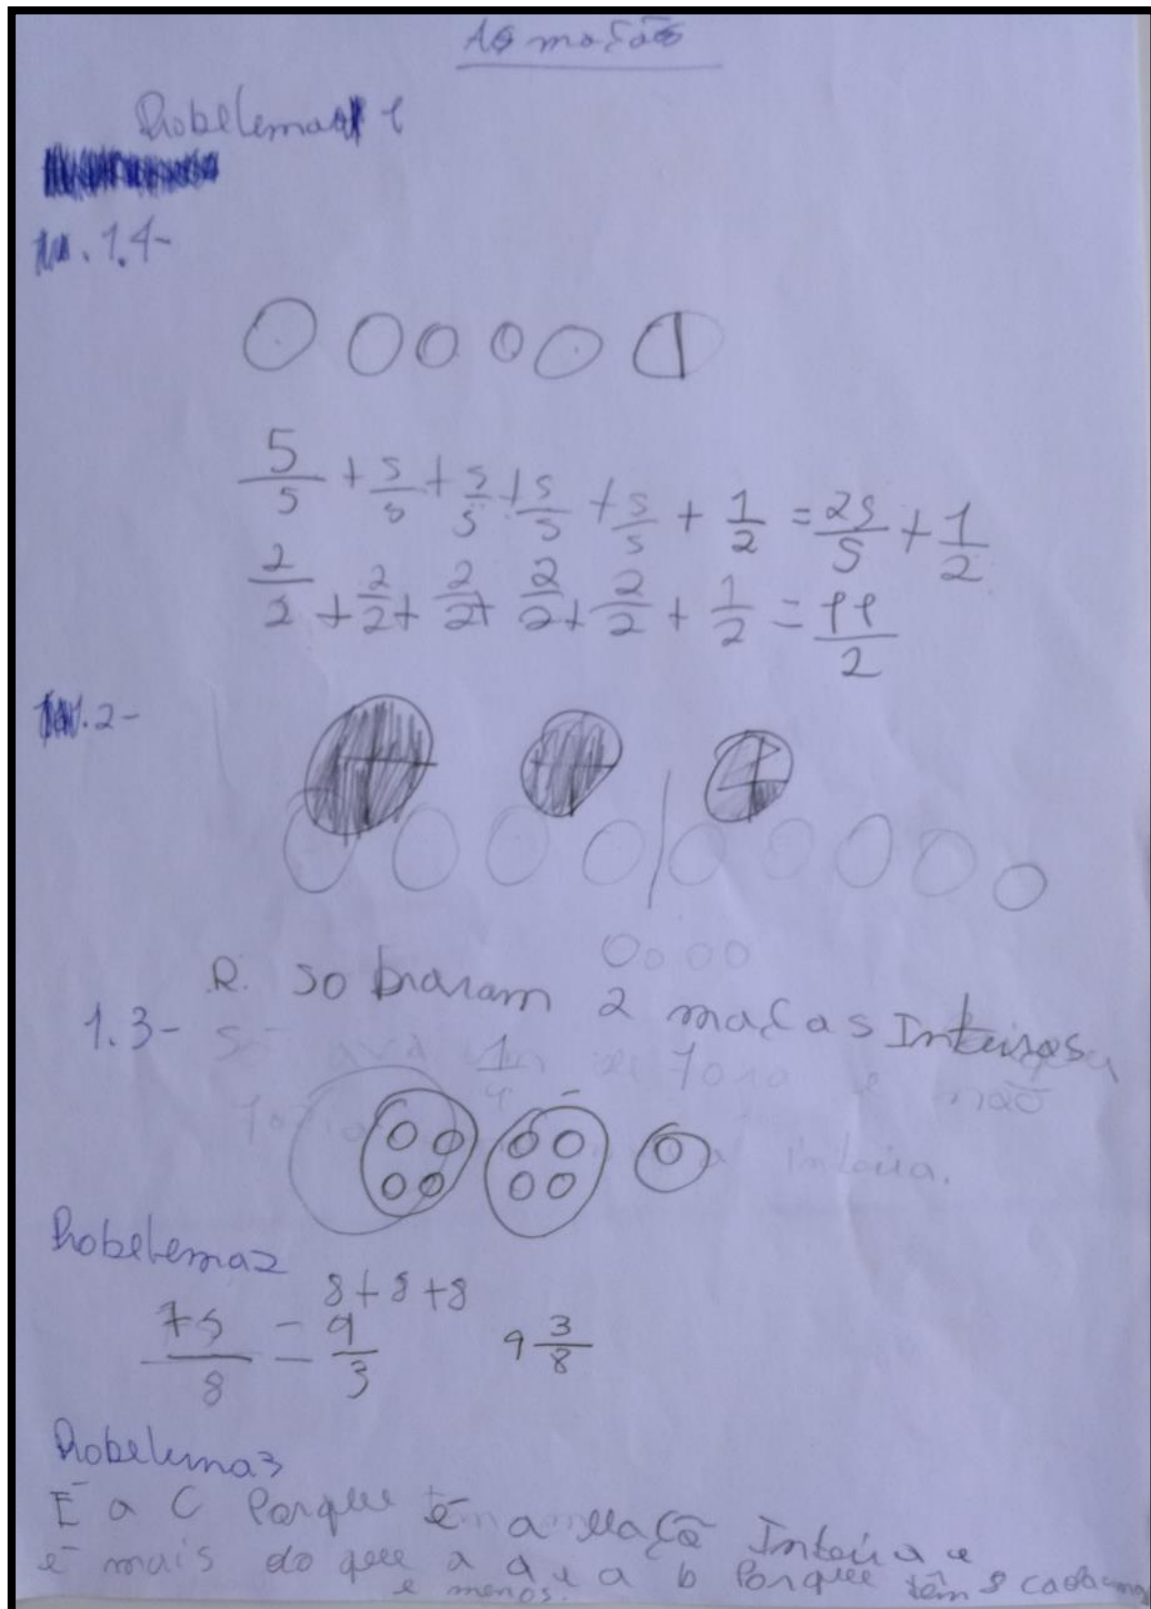 As mações
Probelema 1
1.1-
5/5 + 5/5 + 5/5 + 5/5 + 5/5 + 1/2 = 25/5 + 1/2
2/2 + 2/2 + 2/2 + 2/2 + 2/2 + 1/2 = 11/2
1.2-
R. sobraram 2 maças Inteiras
1.3-
1/4 fora e não
inteira.
Probelema 2
8+8+8
75/8 = 9/3 9 3/8
Probelema 3
É a C Porque é a Maçã Inteira e
é mais do que a a e a b Porque têm 8 cada uma
e menos.